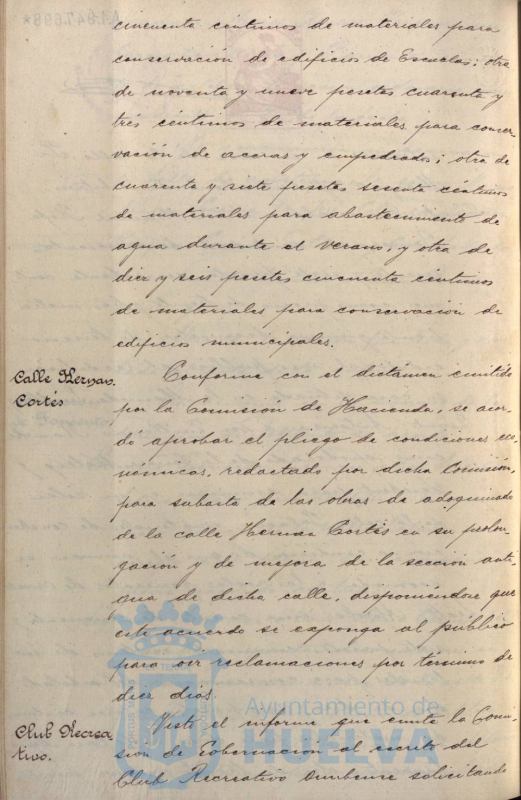 cincuenta céntimos de materiales para
conservación de edificios de Escuelas; otra
de noventa y nueve pesetas cuarenta y
trés céntimos de materiales para conser-
vación de aceras y empedrados; otra de
cuarenta y siete pesetas sesenta céntimos
de materiales para abastecimiento de
agua durante el verano, y otra de
diez y seis pesetas cincuenta céntimos
de materiales para conservación de
edificios municipales.
Calle Hernan
Cortés
Conforme con el dictámen emitido
por la Comisión de Hacienda, se acor-
dó aprobar el pliego de condiciones eco-
nómicas, redactado por dicha Comisión,
para subasta de las obras de adoquinado
de la calle Hernan Cortés en su prolon-
gación y de mejora de la sección anti-
gua de dicha calle, disponiéndose que
este acuerdo se exponga al público
para oir reclamaciones por término de
diez dias.
Club Recrea
tivo.
Visto el informe que emite la Comi-
sión de Gobernación al escrito del
Club Recreativo onubense solicitando
Ayuntamiento de
HUELVA